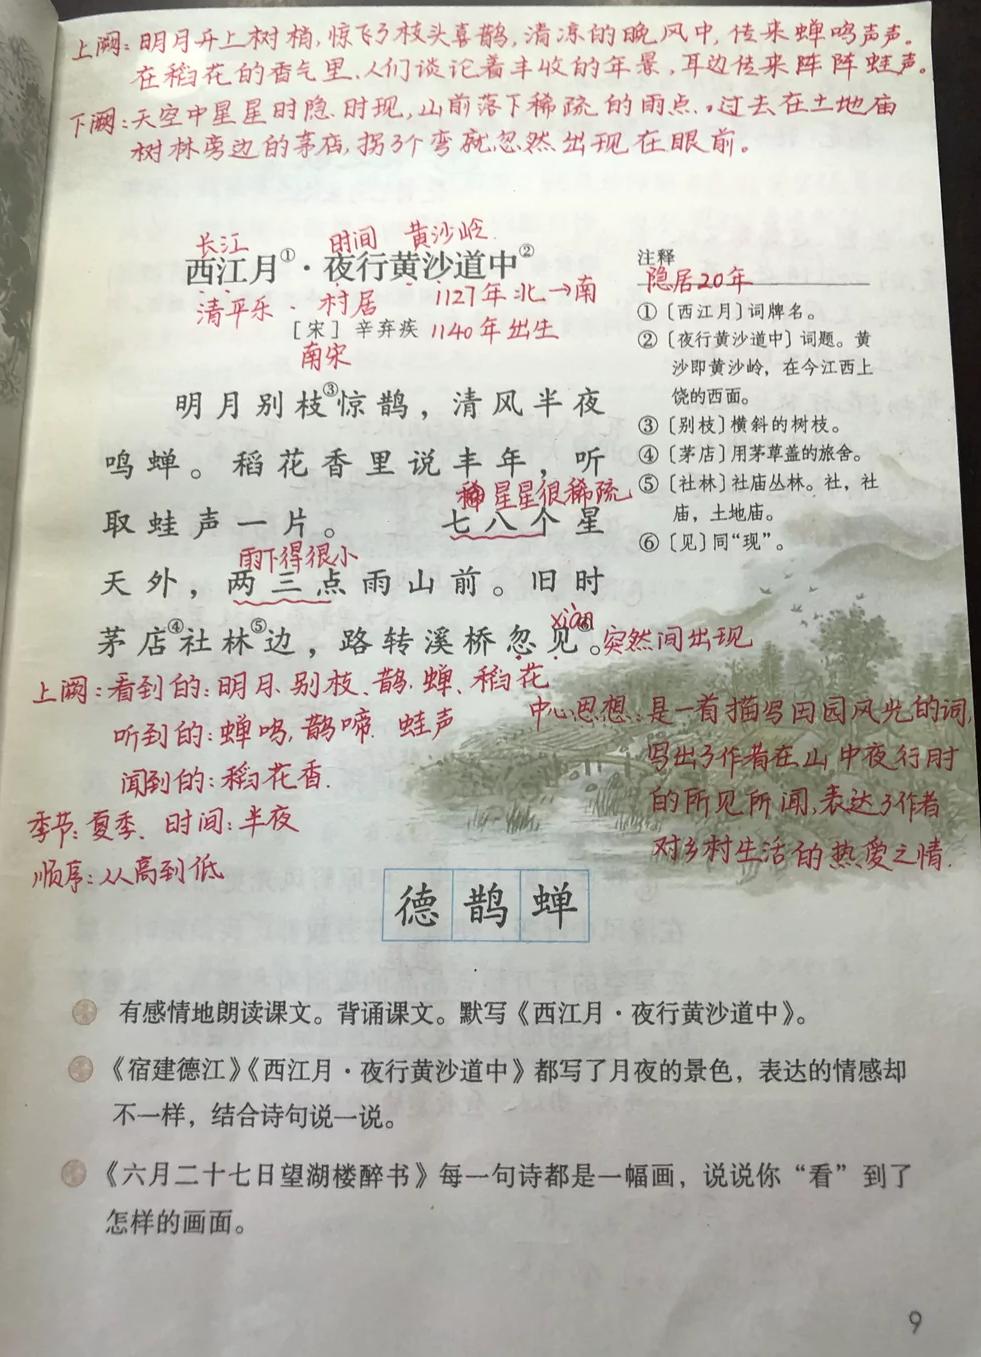 上阙：明月升上树梢，惊飞了枝头喜鹊，清凉的晚风中，传来蝉鸣声声。
在稻花的香气里，人们谈论着丰收的年景，耳边传来阵阵蛙声。
下阙：天空中星星时隐时现，山前落下稀疏的雨点，过去在土地庙
树林旁边的茅店，拐了个弯就忽然出现在眼前。
长江 时间 黄沙岭
西江月①·夜行黄沙道中②
清平乐·村居 1127年北→南
［宋］辛弃疾 1140年出生
南宋
明月别枝③惊鹊，清风半夜
鸣蝉。稻花香里说丰年，听
稀 星星很稀疏
取蛙声一片。 七八个星
雨下得很小
天外，两三点雨山前。旧时
xiàn
茅店④社林⑤边，路转溪桥忽见⑥。突然间出现
注释
隐居20年
①〔西江月〕词牌名。
②〔夜行黄沙道中〕词题。黄
沙即黄沙岭，在今江西上
饶的西面。
③〔别枝〕横斜的树枝。
④〔茅店〕用茅草盖的旅舍。
⑤〔社林〕社庙丛林。社，社
庙，土地庙。
⑥〔见〕同“现”。
上阙：看到的：明月、别枝、鹊、蝉、稻花
听到的：蝉鸣，鹊啼、蛙声
闻到的：稻花香．
季节：夏季、时间：半夜
顺序：从高到低
中心思想：是一首描写田园风光的词，
写出了作者在山中夜行时
的所见所闻，表达了作者
对乡村生活的热爱之情．
德 鹊 蝉
有感情地朗读课文。背诵课文。默写《西江月·夜行黄沙道中》。
《宿建德江》《西江月·夜行黄沙道中》都写了月夜的景色，表达的情感却
不一样，结合诗句说一说。
《六月二十七日望湖楼醉书》每一句诗都是一幅画，说说你“看”到了
怎样的画面。
9